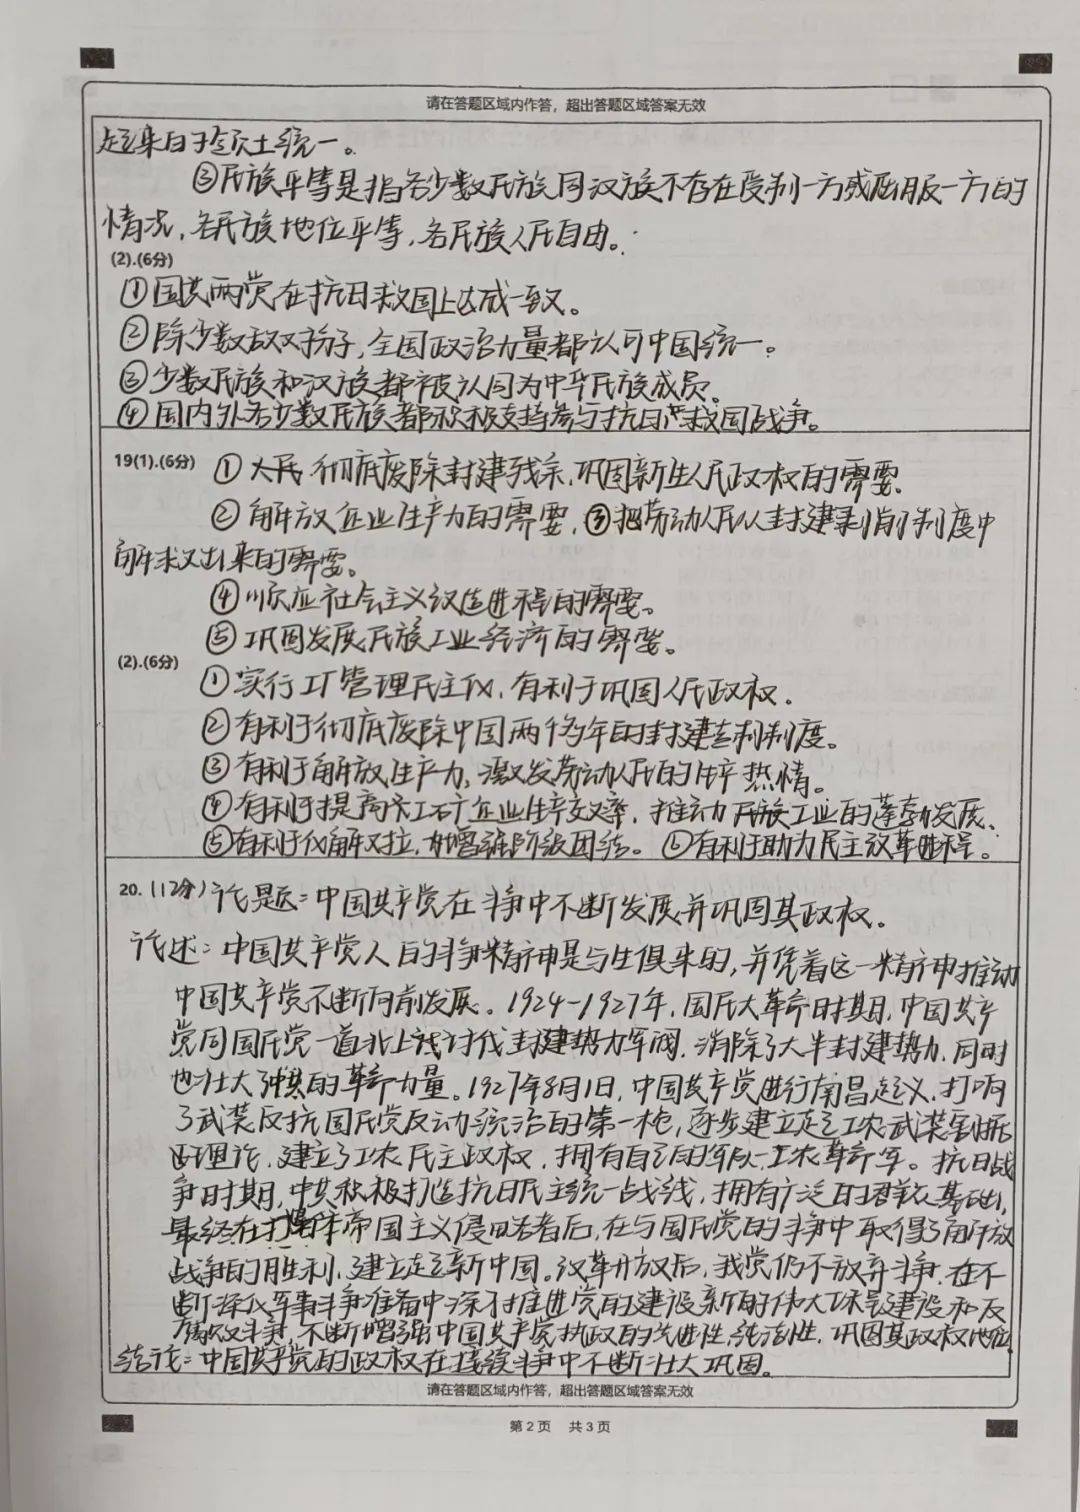 请在答题区域内作答，超出答题区域答案无效
起来的领土统一。
③民族平等是指各少数民族同汉族不存在受制一方或屈服一方的
情况，各民族地位平等，各民族人民自由。
(2).(6分)
①国共两党在抗日救国上达成一致。
②除少数敌对分子，全国政治力量都认可中国统一。
③少数民族和汉族都被认同为中华民族成员。
④国内外各少数民族都积极支持参与抗日救国战争。
19(1).(6分) ①人民彻底废除封建残余，巩固新生人民政权的需要.
②解放企业生产力的需要.③把劳动人民从封建剥削制度中
解救出来的需要。
④顺应社会主义改造进程的需要。
⑤巩固发展民族工业经济的需要。
(2).(6分)
①实行工厂管理民主化，有利于巩固人民政权.
②有利于彻底废除中国两千多年的封建专制制度。
③有利于解放生产力，激发劳动人民的生产热情。
④有利于提高大工矿企业生产效率，推动民族工业的蓬勃发展、
⑤有利于化解对立，增强阶级团结。⑥有利于助力民主改革进程。
20.(12分)论题：中国共产党在斗争中不断发展并巩固其政权.
论述：中国共产党人的斗争精神是与生俱来的，并凭着这一精神推动
中国共产党不断向前发展。1924-1927年，国民大革命时期，中国共产
党同国民党一道北上讨伐封建势力军阀，消除了大半封建势力，同时
也壮大了中共的革命力量。1927年8月1日，中国共产党进行南昌起义，打响
了武装反抗国民党反动统治的第一枪，逐步建立起工农武装割据
理论，建立了工农民主政权，拥有自己的军队-工农革命军。抗日战
争时期，中共积极打造抗日民主统一战线，拥有广泛的群众基础，
最终在打 帝国主义侵略者后，在与国民党的斗争中取得了解放
战争的胜利，建立起新中国。改革开放后，我党仍不放弃斗争，在不
断深化军事斗争准备中深入推进党的建设新的伟大工程建设和反
腐败斗争，不断增强中国共产党执政的先进性，纯洁性，巩固其政权地位.
结论：中国共产党的政权在接续斗争中不断壮大巩固。
请在答题区域内作答，超出答题区域答案无效
第2页 共3页